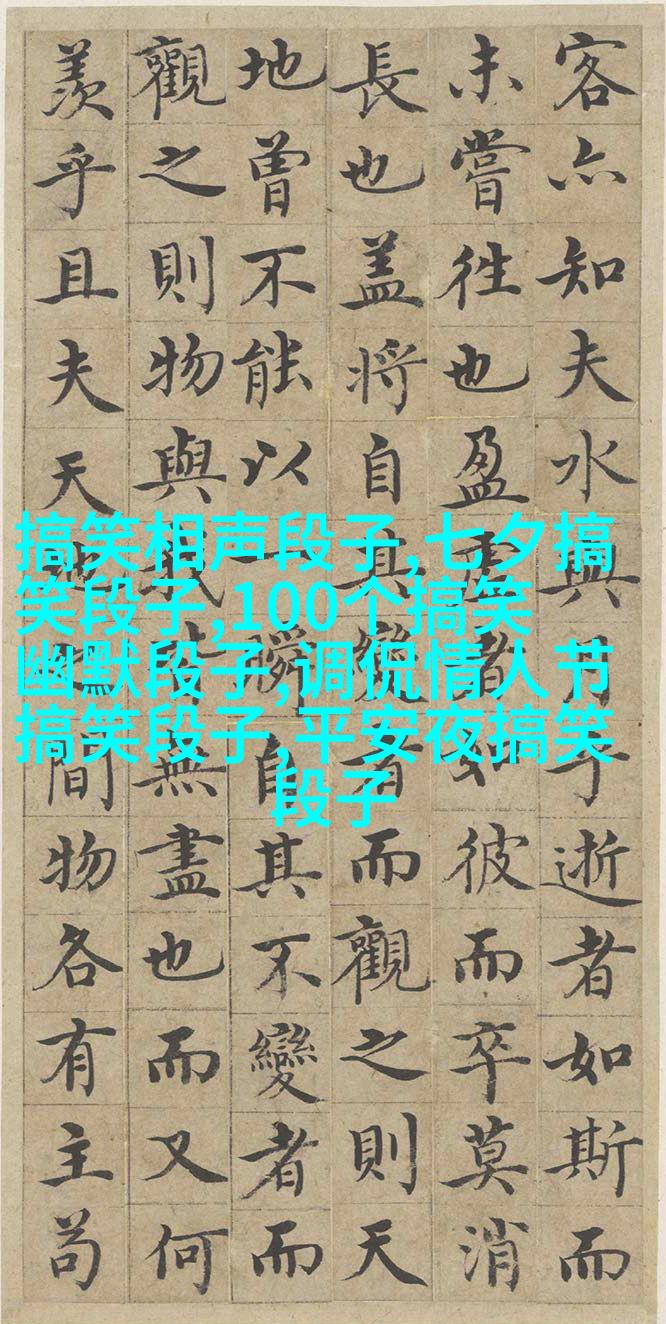 客亦知夫水與月乎逝者如斯而
未嘗往也盈虛者如彼而卒莫消
長也盖將自其變者而觀之則天
地曾不能以一瞬自其不變者而
觀之則物與我皆無盡也而又何
羨乎且夫天地之間物各有主苟
搞笑相声段子,七夕搞
笑段子,100个搞笑
幽默段子,调侃情人节
搞笑段子,平安夜搞笑
段子